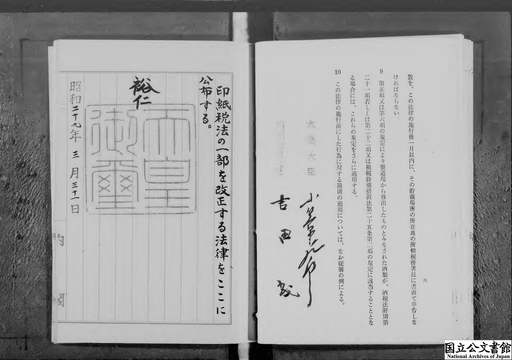 数を、この法律の施行後一月以内に、その貯蔵場所の所在地の所轄税務署長に書面で申告しな
ければならない。
9 第五項又は第六項の規定により製造場から移出したものとみなされた酒類が、酒税法附則第
二十一項若しくは第二十二項又は租税特別措置法第二十五条第二項の規定に該当することとな
る場合には、これらの規定をさらに適用する。
10 この法律の施行前にした行為に対する罰則の適用については、なお従前の例による。
大蔵大臣
小笠原九郎
吉田茂
六
印紙税法の一部を改正する法律をここに
公布する。
裕仁
天皇
御璽
昭和二十九年三月三十一日
国立公文書館
National Archives of Japan